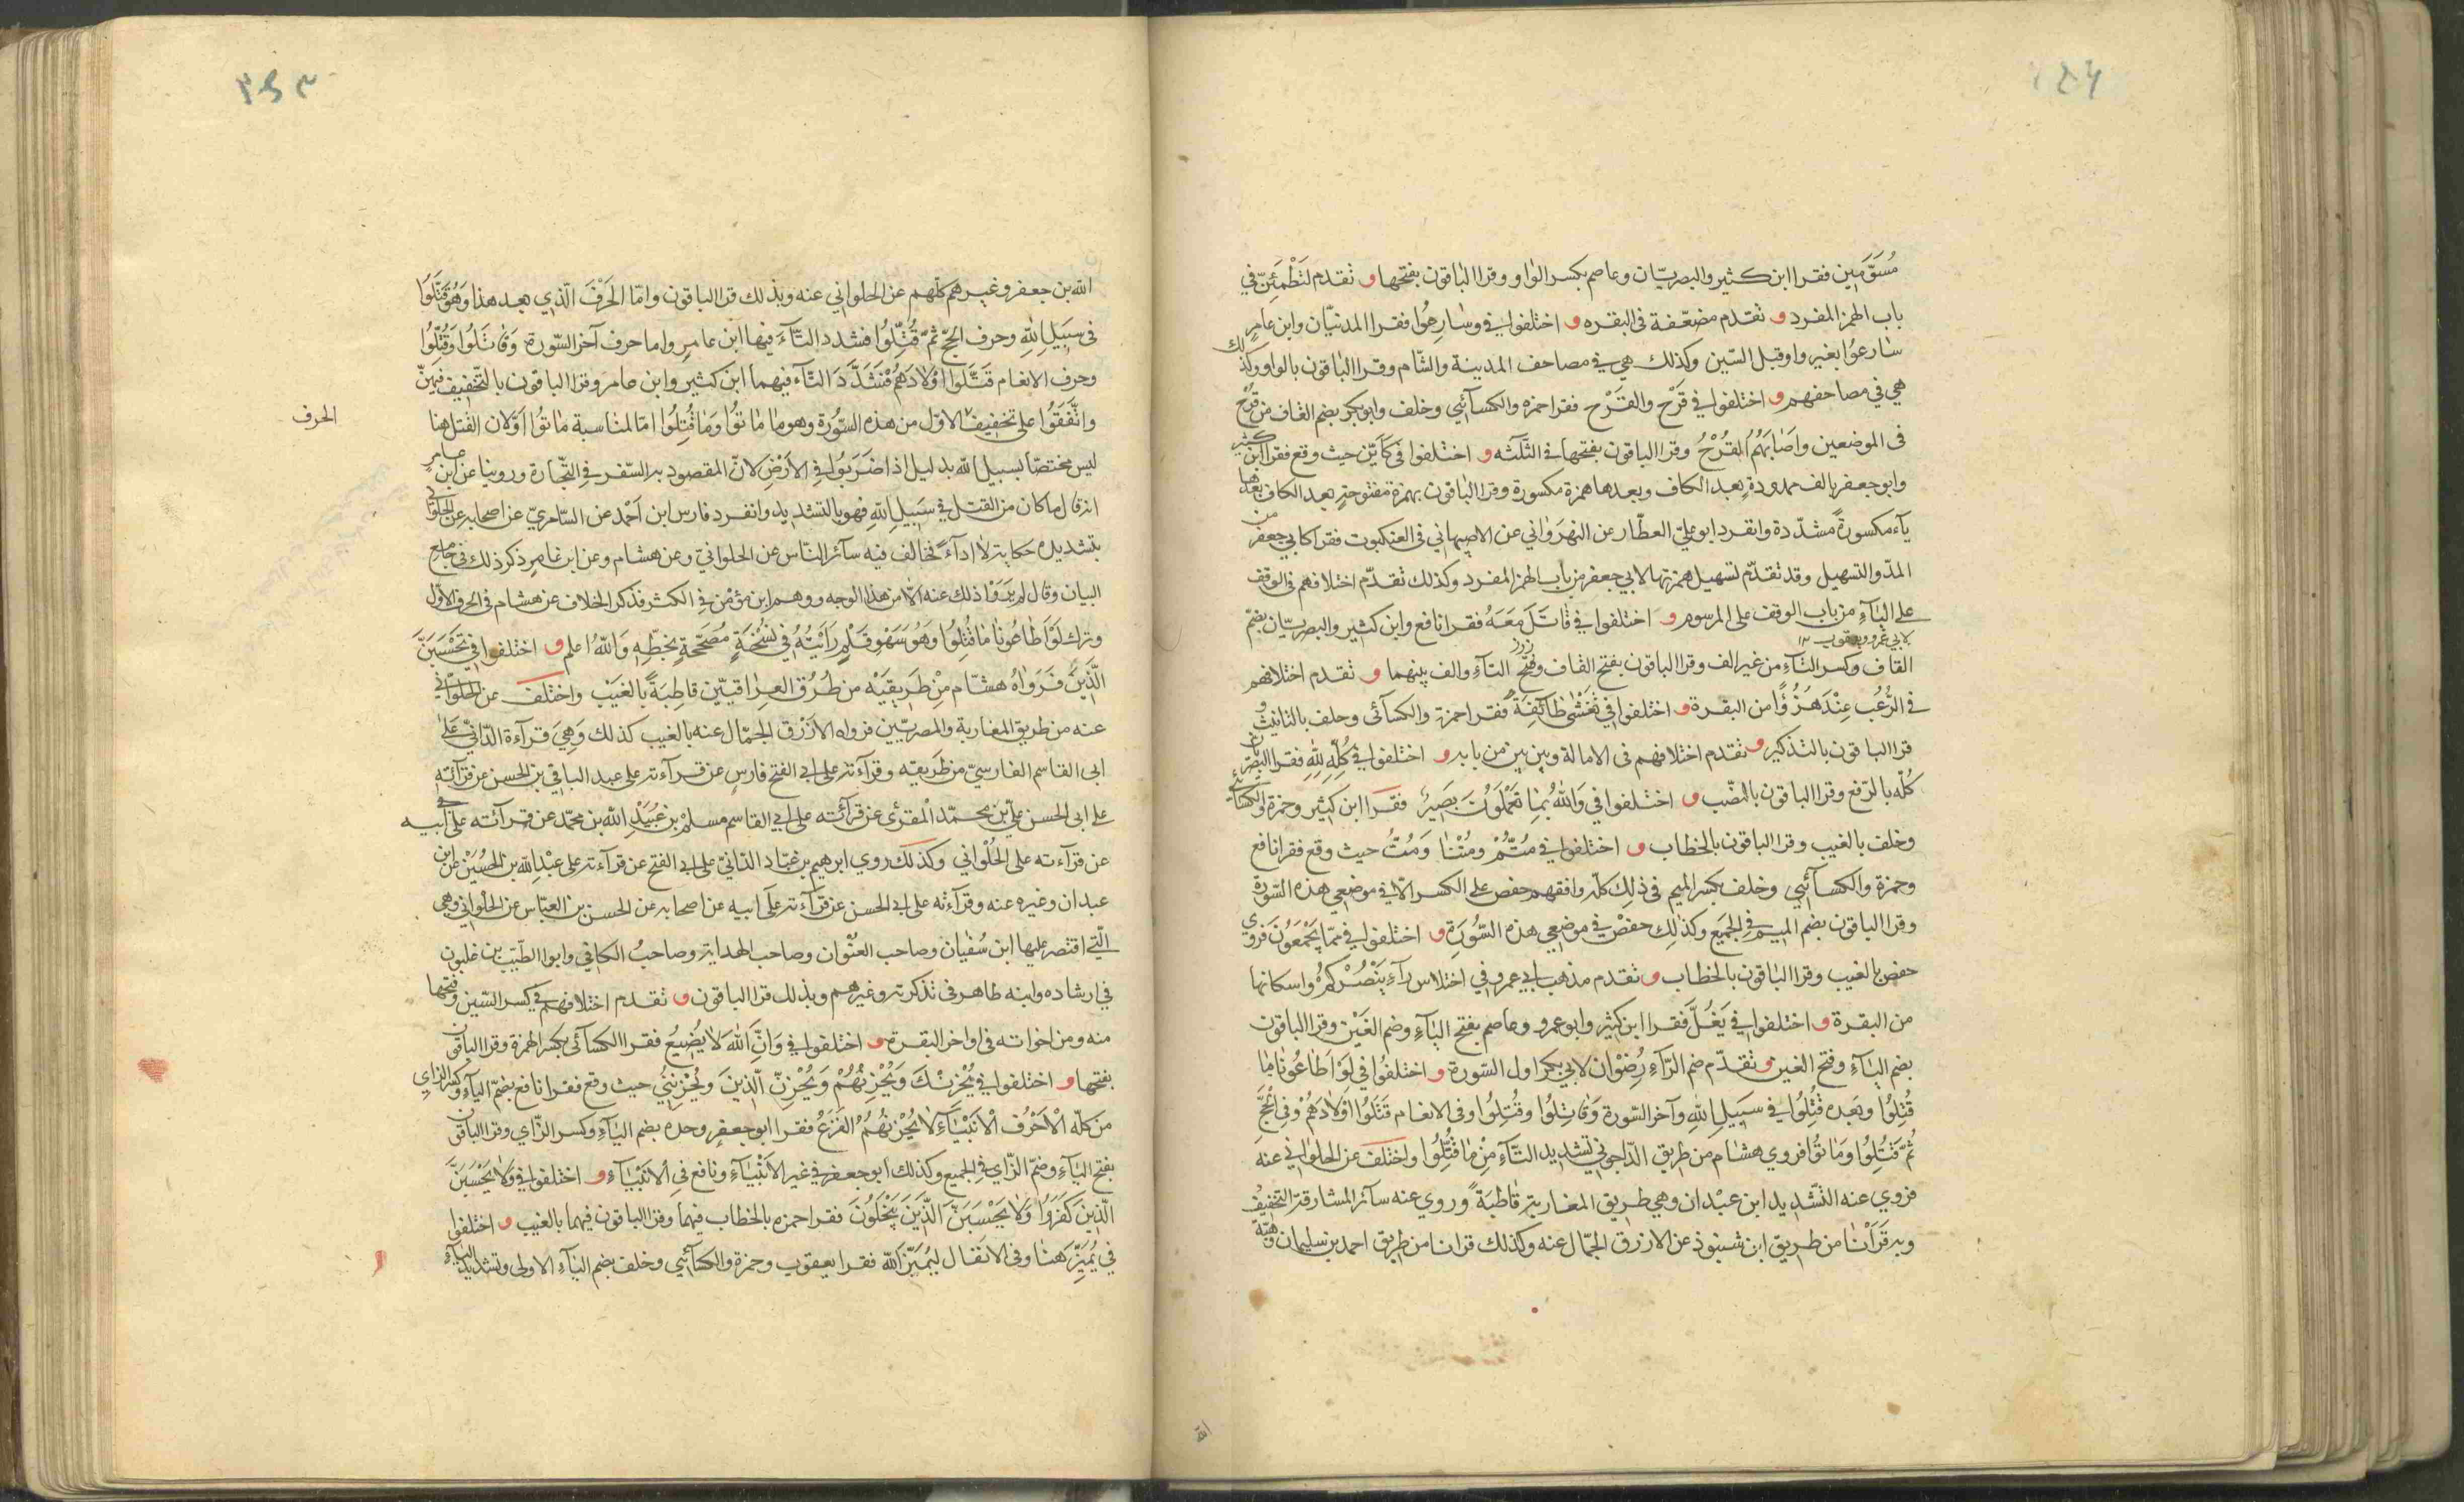 مُسَوَّمِين فقرا ابن كثير والبصريّان وعاصم بكسر الواو وقرا الباقون بفتحها و تقدم لتَطْمَئِنّ في
باب الهمز المفرد و تقدم مضعّفة فى البقره و اختلفوا في وسَارِعُوا فقرا المدنيّان وابن عامرٍ
سَارعوُا بغير واو قبل السّين وكذلك هي في مصاحف المدينة والشّام وقرا الباقون بالواو وكذلك
هي في مصاحفهم و اختلفوا في قَرْح والقَرْح فقرا حمزه والكسآئي وخلف وابو بكر بضم القاف من قُرْح
فى الموضعين واصَابَهُم القُرْحُ وقرا الباقون بفتحها في الثّلثه و اختلفوا فى كَأيّن حيث وقع فقرا ابن كثير
وابو جعفر بالف ممدودة بعد الكاف وبعدها همزة مكسورة وقرا الباقون بهمزة مفتوحة بعد الكاف بعدها
يآء مكسورةً مشدّدة وانفرد ابو عليّ العطّار عن النهرَوٰاني عن الاصبهاني فى العنكبوت فقرا كابي جعفر من
المدّ والتسهيل وقد تقدّم تسهيل همزتها لابي جعفر من باب الهمز المفرد وكذلك تقدّم اختلافهم فى الوقف
على اليآءِ من باب الوقف على المرسوم و اختلفوا في قاتَلَ مَعَهُ فقرا نافع وابن كثير والبصريّان بضمّ
القاف وكسر التآءِ من غير الف وقرا الباقون بفتح القاف وفتح التآءِ والف بينهما و تقدم اختلافهم
لابي عمرو ويعقوب
في الرُّعُب عِنْدَ هُزُؤًا من البقرة و اختلفوا في تَغْشٰى طَائِفَةً فقرا حمزة والكسآئى وخلف بالتانيث و
قرا الباقون بالتذكير و تقدم اختلافهم فى الامالة وبين بين من بابه و اختلفوا في كُلّهِ لِلّهِ فقرا البصريّان
كُلّه بالرّفع وقرا الباقون بالنصّب و اختلفوا في وَاللهُ بمَا تَعْمَلُونَ بَصَيِرٌ فقرا ابن كثير وحمزة والكسآئي
وخلف بالغيب وقرا الباقون بالخطاب و اختلفوا في مُتُّمْ ومُتْنَا وَمُتُّ حيث وقع فقرا نافع
وحمزة والكسآئي وخلف بكسر الميم فى ذلِك كلّه وافقهم حفص على الكسر الّا في موضعي هذه السّورة
وقرا الباقون بضم الميم في الجميع وكذلك حفصْ في موضعي هذه السُّورَة و اختلفوا في ممّا يَجْمَعُونَ فروى
حفص بالغيب وقرا الباقون بالخطاب و تقدم مذهب ابي عمرو في اختلاس رآءِ يَنْصُرْكمُ واسكانها
من البقرة و اختلفوا في يَغُلَّ فقرا ابن كثير وابو عمرو وعاصم بفتح اليآءِ وضم الغَيْن وقرا الباقون
بضم اليآءِ وفتح الغين و تقدّم ضم الرّآءِ رُضوْان لابي بكر اول السّورة و اختلفُوا في لَوْ اَطَاعُونا مَا
قُتِلُوا وبَعده قُتِلُوا في سبَيلِ اللهِ وآخر السّورة وَقَاتِلُوا وقُتِلُوا وفى الانعام قَتَلُوا اوْلادَهُمْ وفى الحجّ
ثُمَّ قُتِلُوا وَمَاتوُا فروي هشام من طريق الدّاجوني تشديد التّآءِ مِنْ مَا قُتِّلُوا واختلف عن الحلواني عنه
فروي عنه التّشديد ابن عبْدان وهي طريق المغاربة قاطبَةً وروي عنه سآئر المشارقة التخفيف
وبه قَرَأنٰا من طريق ابن شنبوذ عن الازرق الجمّال عنه وكذلك قرانا من طريق احمد بن سليمان وهبة
الله
الله بن جعفر وغيرهم كلّهم عن الحلواني عنه وبذلك قرا الباقون وامّا الحَرْفَ الّذي بعد هذا وَهُو قُتِلُوا
فى سبَيلِ اللهِ وحرف الحجّ ثمّ قُتِّلُوا فشدد التّآءَ فيها ابن عامرٍ واما حرف آخر السّورة وَقَاتَلُوا وَقُتِّلُوا
وحرف الانعام قَتَّلُوا اوْلادَهُمْ فَشَدَّدَ التّآء فيهما ابن كثير وابن عامر وقرا الباقون بالتّخفيف فيهنّ
واتَّفَقُوا على تخفيف الاوّل من هذه السّورة وهو مَا مَاتوُا وَمَا قُتِلُوا امّا لمناسبة مَاتوُا اوّلان القتل هنا
الحرف
ليس مختصّا بسبيل الله بدليل اذا ضَرَبوُا فِي الأَرْضِ لانّ المقصود به السّفر في التّجارة وروينا عن ابن عامرٍ
انه قال ما كان من القتل في سَبيلِ اللهِ فهو بالتشديد وانفرد فارس ابن اَحْمد عن السّامريّ عن اصحابه عن الحلوٰاني
بتشديده حكاية لا ادآءً فخالف فيه سآئر النّاس عن الحلوانيّ وعن هشام وعن ابن عامرٍ ذكر ذلك فى جامع
البيان وقال لم يَرَوْا ذلك عنه الّا من هذا الوجه ووهم ابن مؤْمن في الكنز فذكر الخلاف عن هشام فى الحرف الاوّل
وترك لَوْ اَطَاعُونَا مَا قُتِلُوا وَهُو سَهْو قلمٍ رَأَيْتُهُ في نُسْخَةٍ مُصَحّحَةٍ بخطّهِ وَاللهُ اعلم و اختلفوا في تَحْسَبَنَّ
الّذَينَ فَرَوٰاهُ هشام مِنْ طَريقَيْه من طُرُقِ العِرٰاقيّين قاطِبَةً بالغَيْب واختلف عن الحلوٰاني
عنه من طريق المغاربة والمصريّيين فرواه الازْرَق الجمّال عنه بالغيب كذلك وَهِيَ قرآءة الدّانيّ على
ابى القاسم الفارسيّ من طَريقه وقرآءته على ابى الفتح فارسٍ عن قرآءته على عبد الباقى بن الحسن عن قرآئته
على ابى الحسن عليّ بن محمّد المقرئ عن قرآئته على ابي القاسم مسلم بن عُبَيْدِ الله بن محمّد عن قرآئته على ابيه
عن قرآءته على الحُلْواني وكذلك روي ابرهيم بن عبّاد الدّانيّ على ابى الفتح عن قرآءته على عبْدِ الله بن الحُسَيْن عن ابن
عبدان وغيره عنه وقرآءته على ابى الحسن عن قرآءته على ابيه عن اصحابه عن الحسن بن العبّاس عن الحلْواني وهي
الّتى اقتصر عليها ابن سُفيَان وصاحب العُنْوان وصاحب الهداية وصاحبُ الكافي وابو الطّيّب بن غلبون
في ارشاده وابنه طاهر فى تذكرته وغيرهم وبذلك قرا الباقون و تقدم اختلافهم في كسر السّين وفتحها
منه ومن اخواته فى اواخر البقرة و اختلفوا في وَانَّ اللهَ لَا يُضيعُ فقرا الكسآئى بكسر الهمزة وقرا الباقون
بفتحها و اختلفوا في يُحْزِنْكَ وَيُحْزِنهُمْ وَيُحْزِنّ الّذِينَ ولَيُحْزِنُني حيث وقع فقرا نافع بضمّ اليآءِ وكسر الزاي
من كلّه الّا حَرْف الانَبْيَآءِ لا يُحْزِنهُمُ الفَزَعُ فقرا ابو جعفرٍ وحده بضم اليآءِ وكسر الزّاي وقرا الباقون
بفتح اليآءِ وضمّ الزّاي في الجميع وكذلك ابو جعفر في غير الانَبْيَآءِ ونافع في الانَبْيَآءِ و اختلفوا في وَلٰا يَحْسَبَنَّ
الّذينَ كَفَرَوُا وَلٰا يَحْسَبَنَّ الّذَينَ يَبْخَلُونَ فقرا حمزه بالخطاب فيهما وقرا الباقون فيهما بالغيب و اختلفوا
في يُمَيِّز هَنٰا وفى الانفَال ليُمَيّزَ الله فقرا يعقوب وحمزة والكسآئي وخلف بضم اليآءِ الاولى وتشديد اليآءِ